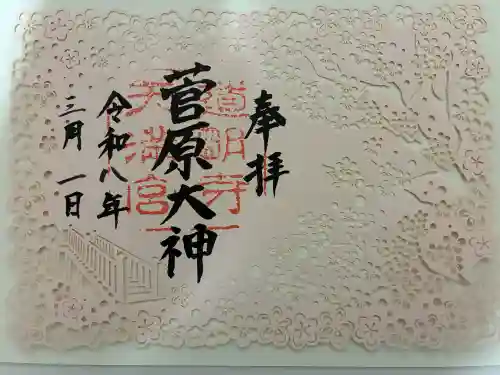 奉拝
菅原大神
道明寺
天満宮
令和八年
三月一日